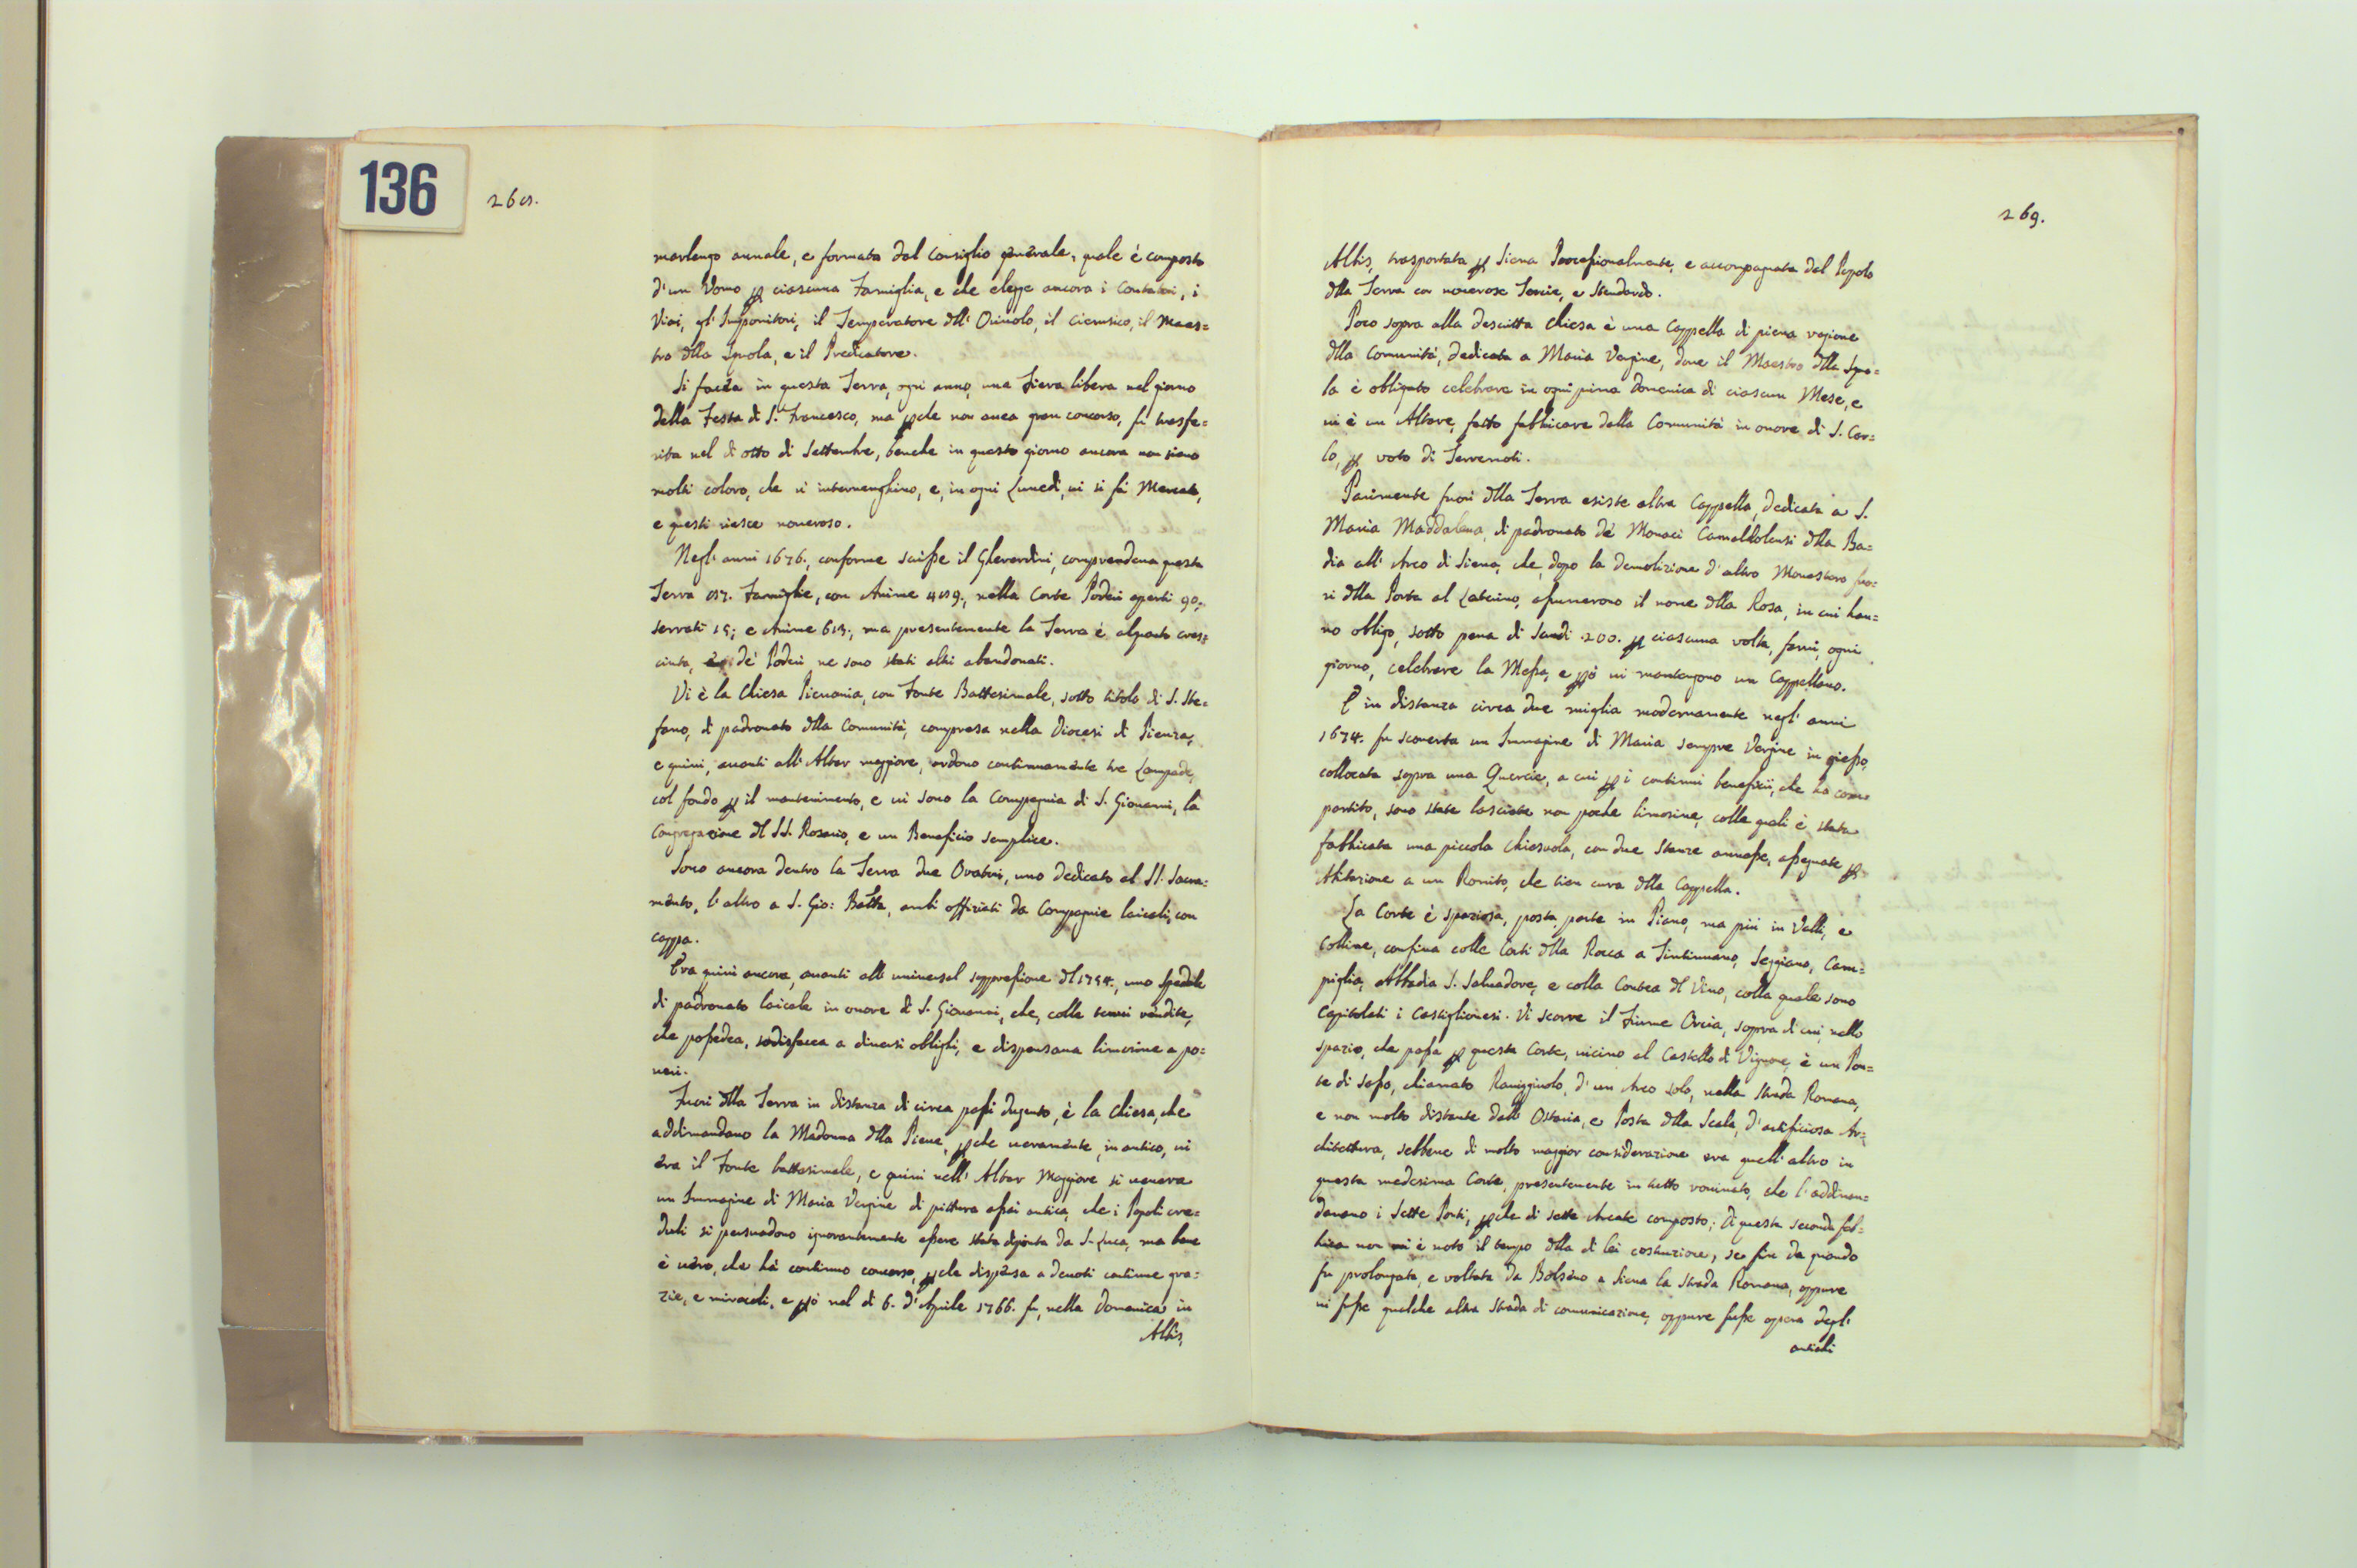 136
268.
marlengo annale, e formata dal Consiglio generale, quale è composto
d'un Uomo p ciascuna Famiglia, e che elegge ancora i Contatori, i
Viai, gl' Imponitori, il Temperatore dll' Oriuolo, il Cierusico, il Maes=
tro dlla Squola, e il Predicatore.
Si facéa in questa Terra, ogni anno, una Fiera libera nel giorno
della Festa di S. Francesco, ma pche non avea gran concorso, fù trasfe=
rita nel dì otto di Settembre, benche in questo giorno ancora non siano
molti coloro, che vi intervenghino, e, in ogni Lunedì, vi si fà Mercato,
e questi riesce noueroso.
Negl' anni 1676., conforme scrisse il Gherardini, comprendeva questa
Terra 87. Famiglie, con Anime 489., nella Corte Poderi aperti 90.,
serrati 15; e Anime 613.; ma presentemente la Terra è alquanto cres=
ciuta, de' Poderi ne sono stati altri abandonati.
Vi è la Chiesa Pievania, con Fonte Battesimale, sotto titolo di S. Ste=
fano, di padronato dlla Comunità, compresa nella Diocesi di Pienza,
e quivi, avanti all' Altar maggiore, ardono continuamente tre Lampade,
col fondo p il mantenimento, e vi sono la Compagnia di S. Giovanni, la
Congregazione dl SS. Rosario, e un Beneficio semplice.
Sono ancora dentro la Terra due Oratori, uno dedicato al SS. Sacra=
mento, l'altro a S. Gio: Batta, ambi offiziati da Compagnie laicali, con
cappa.
Era quivi ancora, avanti all' universal soppressione dl 1754., uno Spedale
di padronato laicale in onore di S. Giovanni, che, colle tenui rendite,
che possedea, sodisfacea a diversi oblighi, e dispensava limosine a po=
veri.
Fuori dlla Terra in distanza di circa passi dugento, è la Chiesa, che
addimandano la Madonna dlla Pieve, pche veramente, in antico, vi
éra il Fonte battesimale, e quivi nell' Altar Maggiore si venera
un Immagine di Maria Vergine di pittura assai antica, che i Popoli cre=
duli si persuadono ignorantemente essere stata dipinta da S. Luca, ma bene
è véro, che hà continuo concorso, pche dispénsa a devoti continue gra=
zie, e miracoli, e pò nel dì 6. d'Aprile 1766. fu, nella Domenica in
Albis,
269.
Albis, trasportata p Siena Processionalmente, e accompagnata dal Popolo
dlla Terra con nouerose Torcie, e Stendardo.
Poco sopra alla descritta Chiesa è una Cappella di piena ragione
dlla Comunità, dedicata a Maria Vergine, dove il Maestro dlla Squo=
la è obligato celebrare in ogni prima Domenica di ciascun Mese, e
vi è un Altare, fatto fabbricare dalla Comunità in onore di S. Car=
lo, p voto di Terremoti.
Parimente fuori dlla Terra esiste altra Cappella, dedicata a S.
Maria Maddalena, di padronato de' Monaci Camaldolensi dlla Ba=
dia all' Arco di Siena, che, dopo la demolizione d'altro Monastero fuo=
ri dlla Porta al Laterino, assunsero il nome dlla Rosa, in cui han=
no obligo, sotto pena di Scudi 200. p ciascuna volta, farvi, ogni
giorno, celebrare la Messa, e pò vi mantengono un Cappellano.
E in distanza circa due miglia modernamente negl' anni
1674. fu scoverta un Immagine di Maria sempre Vergine in giesso,
collocata sopra una Quercie, a cui p i continui benefizii, che ha com=
partito, sono state lasciate non poche limosine, colle quali è stata
fabbricata una piccola Chiesuola, con due Stanze annesse, assegnate p
Abitazione a un Romito, che tien cura dlla Cappella.
La Corte è spaziosa, posta parte in Piano, ma più in Valli, e
Colline, confina colle Corti dlla Rocca a Tintinnano, Seggiano, Cam=
piglia, Abbadia S. Salvadore, e colla Contea dl Vivo, colla quale sono
Capitolati i Castiglionesi. Vi scorre il Fiume Orcia, sopra di cui, nello
spazio, che passa p questa Corte, vicino al Castello di Vignone, è un Pon=
te di sasso, chiamato Ranigginolo, d'un Arco solo, nella Strada Romana,
e non molto distante dall' Ostaria, e Posta dlla Scala, d'artificiosa Ar=
chitettura, sebbene di molto maggior considerazione era quell' altro in
questa medesima Corte, presentemente in tutto rovinato, che l'addiman=
davano i Sette Ponti, pche di sette Arcate composto; Di questa seconda fab=
brica non mi è noto il tempo dlla di lei costruzione, se fin da quando
fu prolongata, e voltata da Bolséno a Siena la Strada Romana, oppure
vi fusse qualche altra Strada di comunicazione, oppure fusse opera degl'
antichi